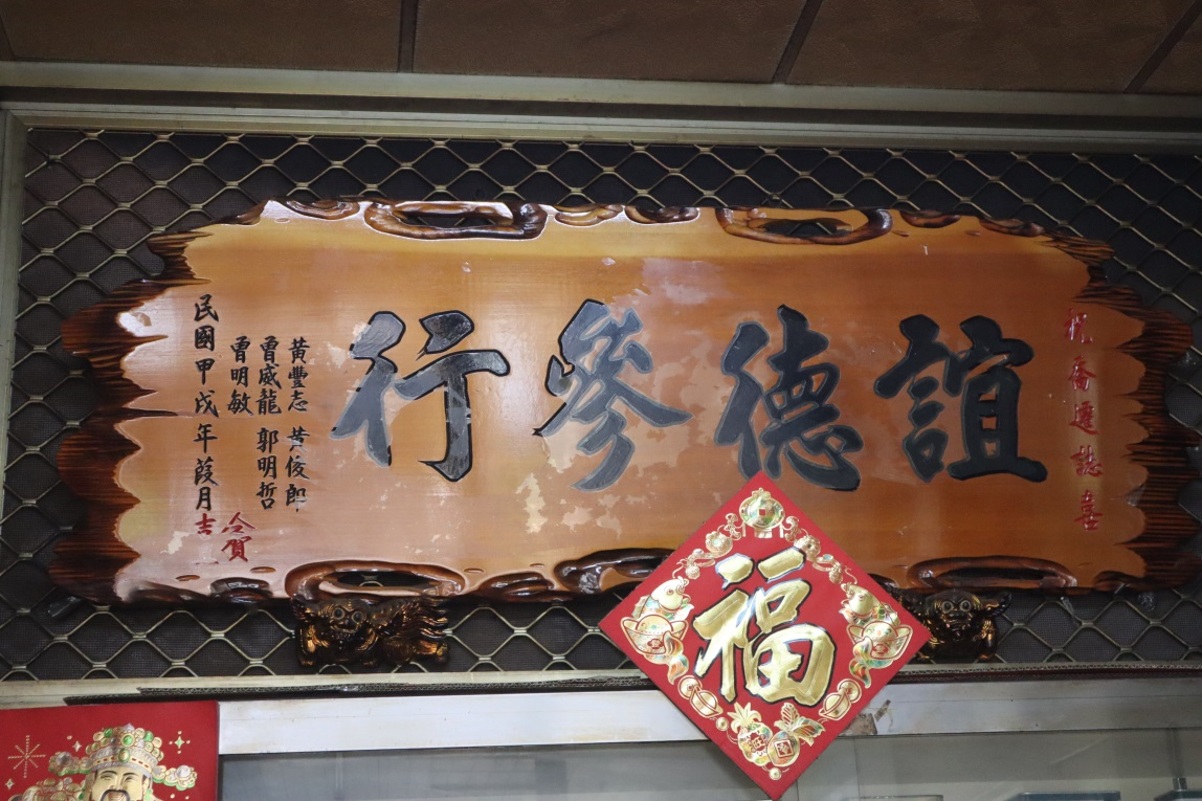 祝喬遷誌喜
誼德參行
黃豐志 黃俊郎
曾威龍 郭明哲
曾明敏
仝賀
民國甲戌年葭月吉
福